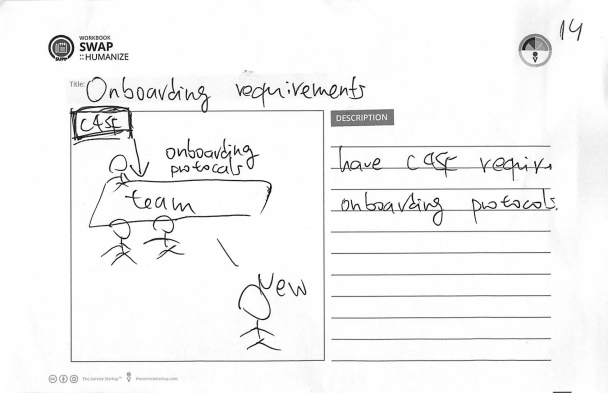 14
WORKBOOK
SWAP
::HUMANIZE
Title: Onboarding requirements
CASE
onboarding
protocals
team
New
DESCRIPTION
have CASE require
onboarding protocols.
The Service Startup™ theservicestartup.com